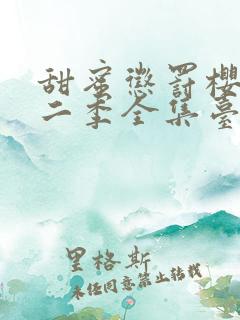 甜蜜懲罰櫻
二季全集臺
里格斯
未经同意禁止转载